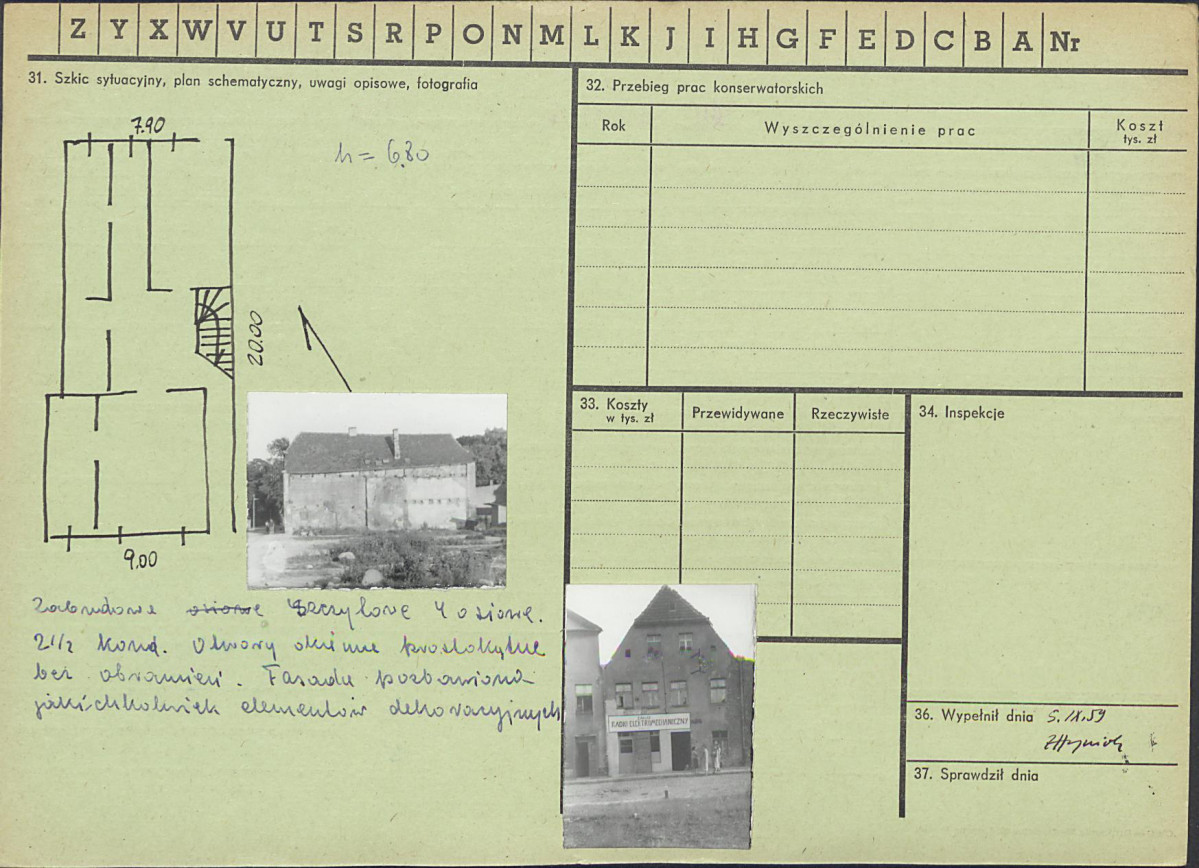 Z Y X W V U T S R P O N M L K J I H G F E D C B A Nr
31. Szkic sytuacyjny, plan schematyczny, uwagi opisowe, fotografia
7.90
h = 6.80
20.00
9.00
Zabudowe osiowe szczytowe 4 osiowe.
2 1/2 kond. Otwory okienne prostokątne
bez obramień. Fasada pozbawiona
jakichkolwiek elementów dekoracyjnych
RADIO-ELEKTROMECHANICZNY
32. Przebieg prac konserwatorskich
Rok Wyszczególnienie prac Koszt
tys. zł
33. Koszty
w tys. zł Przewidywane Rzeczywiste
34. Inspekcje
36. Wypełnił dnia 5.IX.59
37. Sprawdził dnia